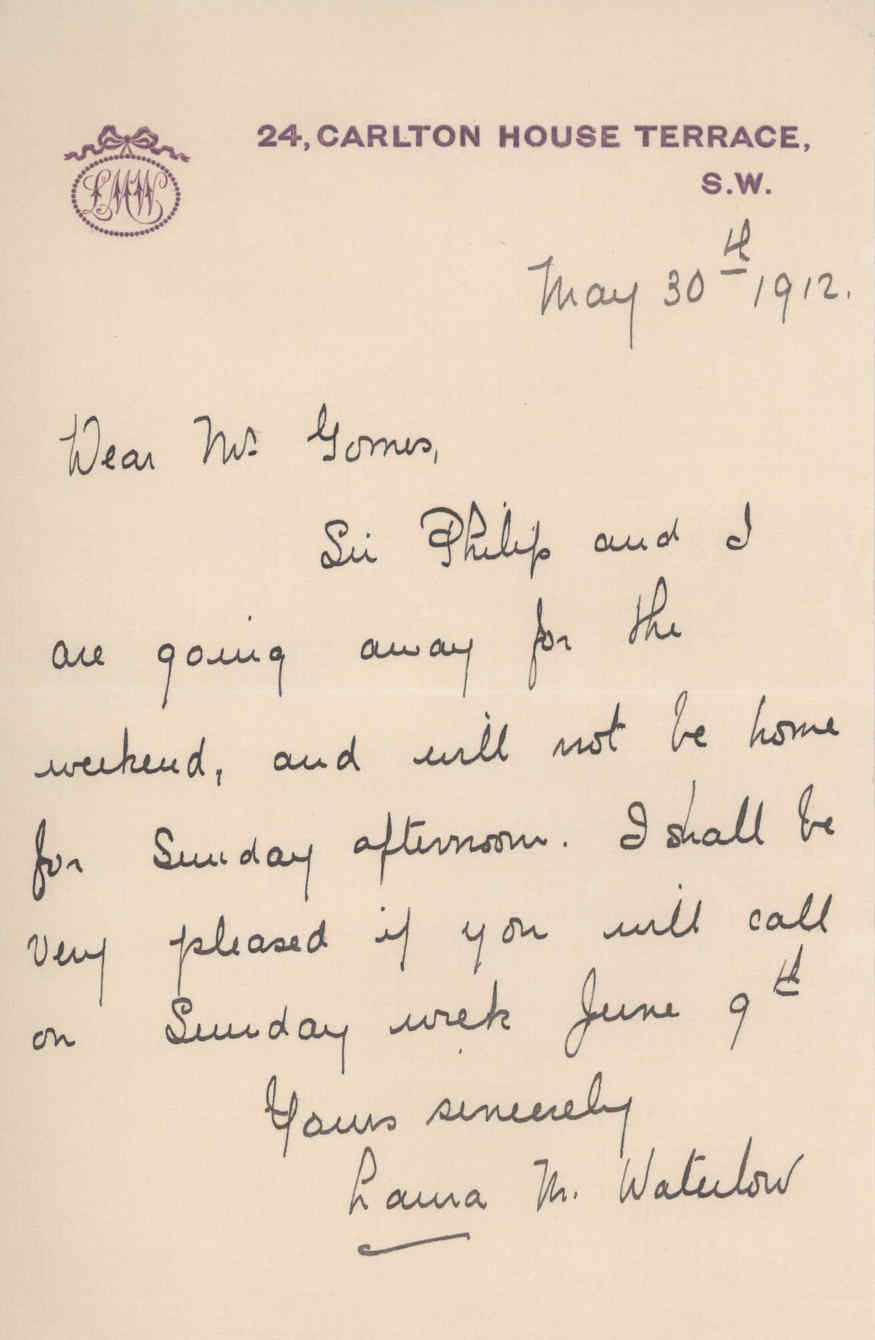 LMW
24, CARLTON HOUSE TERRACE,
S.W.
May 30th 1912.
Dear Mr. Gomes,
Sir Philip and I
are going away for the
weekend, and will not be home
for Sunday afternoon. I shall be
very pleased if you will call
on Sunday week June 9th
Yours sincerely
Laura M. Waterlow